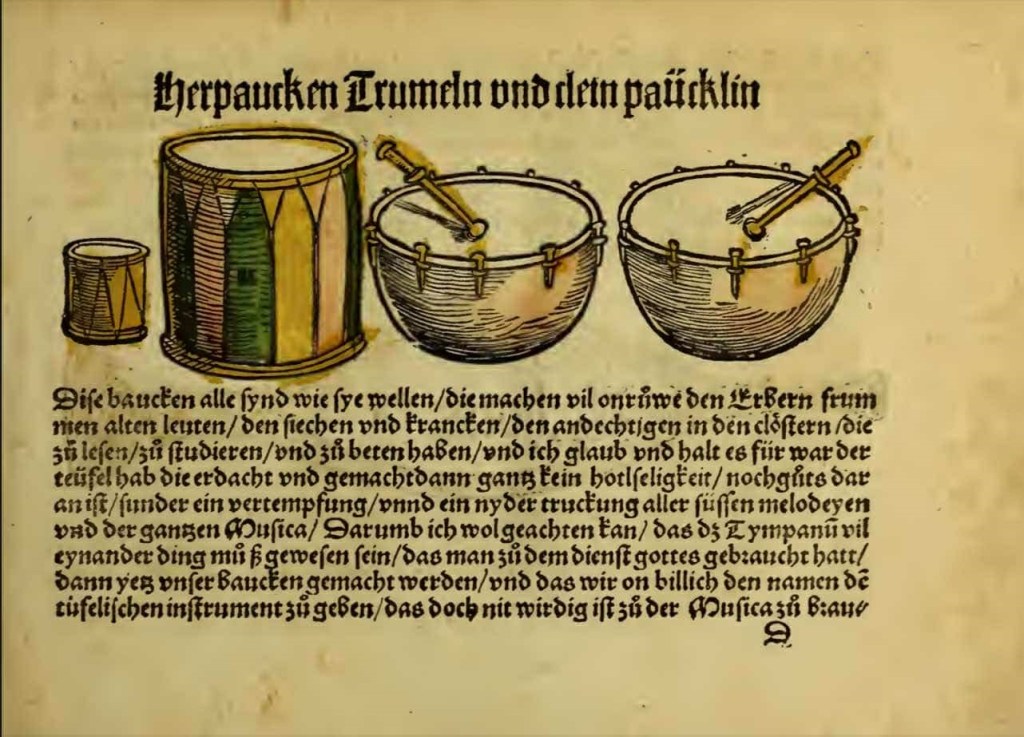 Herpaucken Trumeln vnd clein paücklin
Dise baucken alle synd wie sye wellen/die machen vil onrůwe den Erbern frum
men alten leuten/ den siechen vnd krancken/den andechtigen in den clöstern /die
zů lesen/zů studieren/vnd zů beten haben/vnd ich glaub vnd halt es für war der
teüfel hab die erdacht vnd gemacht dann gantz kein holtseligkeit/ noch gůts dar
an ist/sunder ein vertempfung/vnnd ein nyder truckung aller süssen melodeyen
vnd der gantzen Musica/ Darumb ich wol geachten kan/ das dz Tympanū vil
eynander ding můß gewesen sein/das man zů dem dienst gottes gebraucht hatt/
dann yetz vnser baucken gemacht werden/vnd das wir on billich den namen dē
tüfelischen instrument zů geben/das doch nit wirdig ist zů der Musica zů brau⸗
D